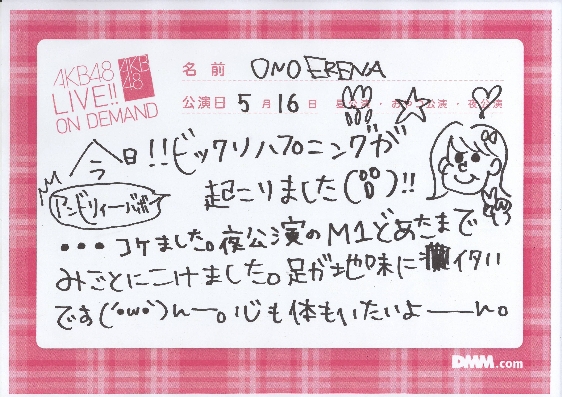 AKB48
LIVE!!
ON DEMAND
AKB
48
名前 ONO ERENA
公演日 5月16日 昼公演・おやつ公演・夜公演
今日!!ビックリハプニングが
起こりました( )!!
アンビリィーバボー
・・・コケました。夜公演のM1どあたまで
みごとにこけました。足が地味にイタい
です(´·ω·`)んー。心も体もいたいよーーん。
DMM.com